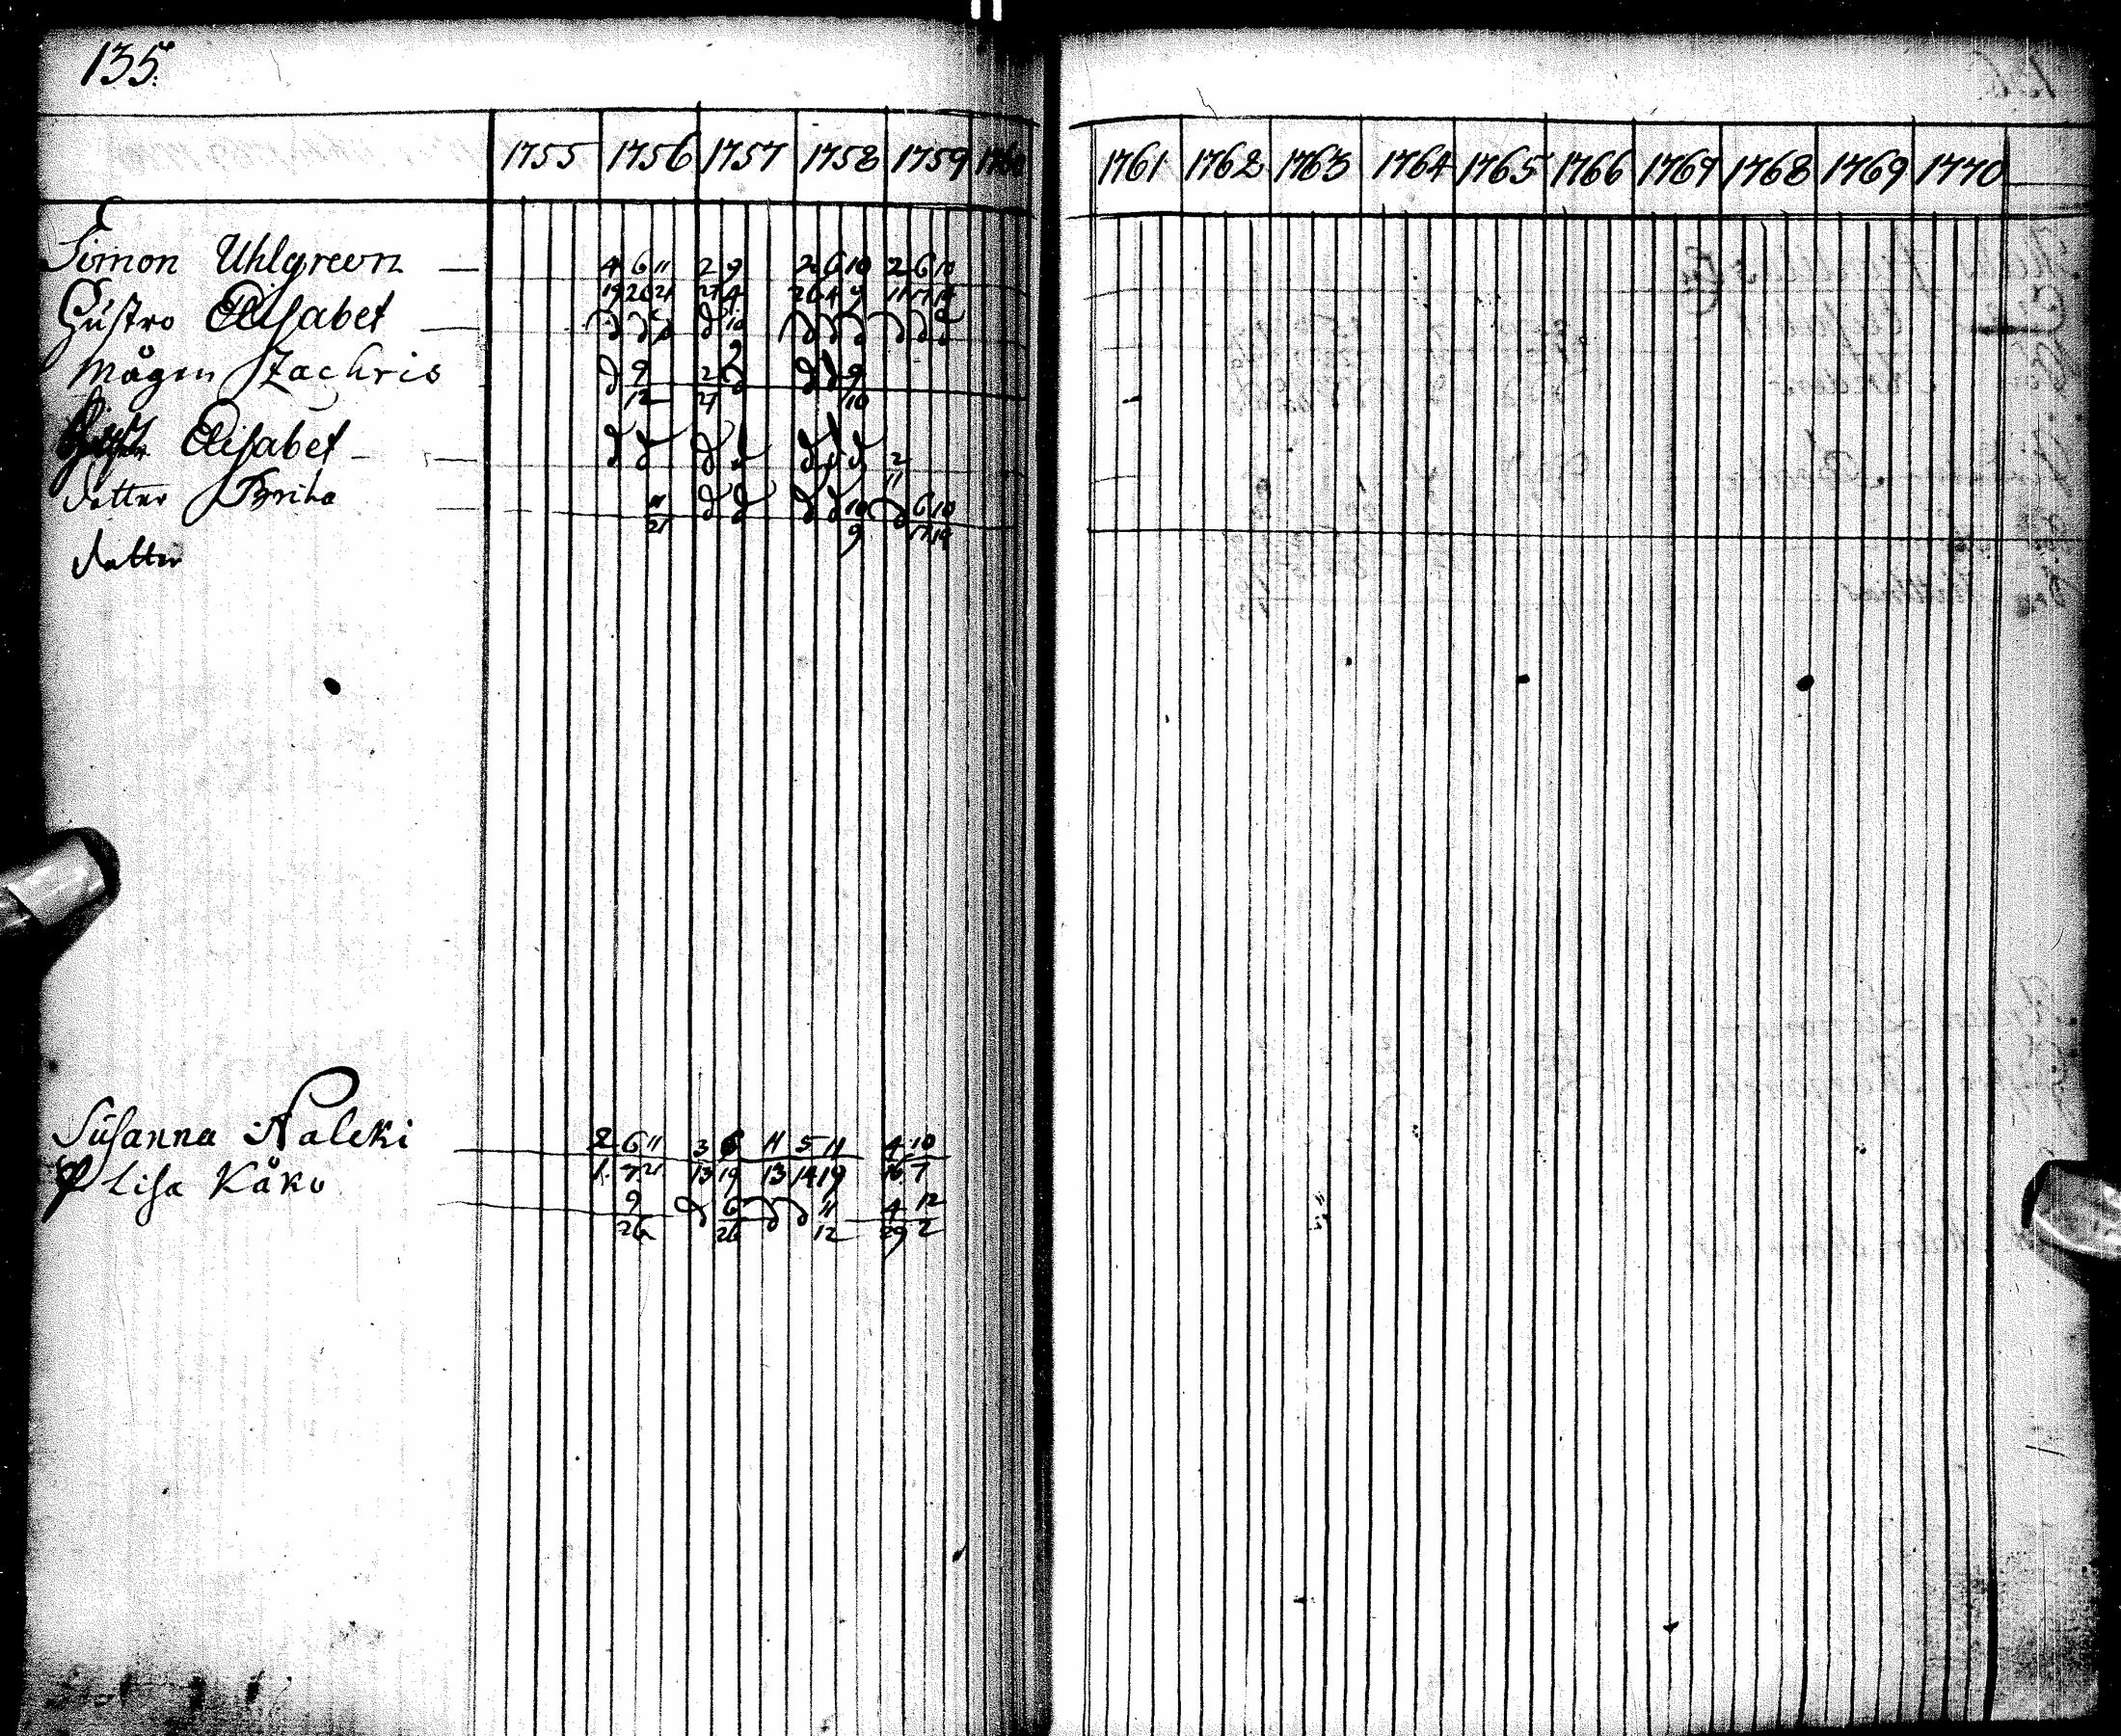 135.
1755 1756 1757 1758 1759 1760 1761 1762 1763 1764 1765 1766 1767 1768 1769 1770
Simon Uhlgreen 4 6 11 2 9 2 6 10 2 6 10
19 26 21 27 4 26 4 9 11 17 14
Hustro Elisabet
Mågen Zachris 9 2 9
12 27 10
Elisabet 2
11
dotter Brita 11 10 6 10
21 9 17 14
dotter
Susanna Naleki 2 6 11 3 6 11 5 11 4 10
1 7 21 13 19 13 14 19 16 7
Lisa Kåko 9 6 11 4 12
26 26 12 29 2